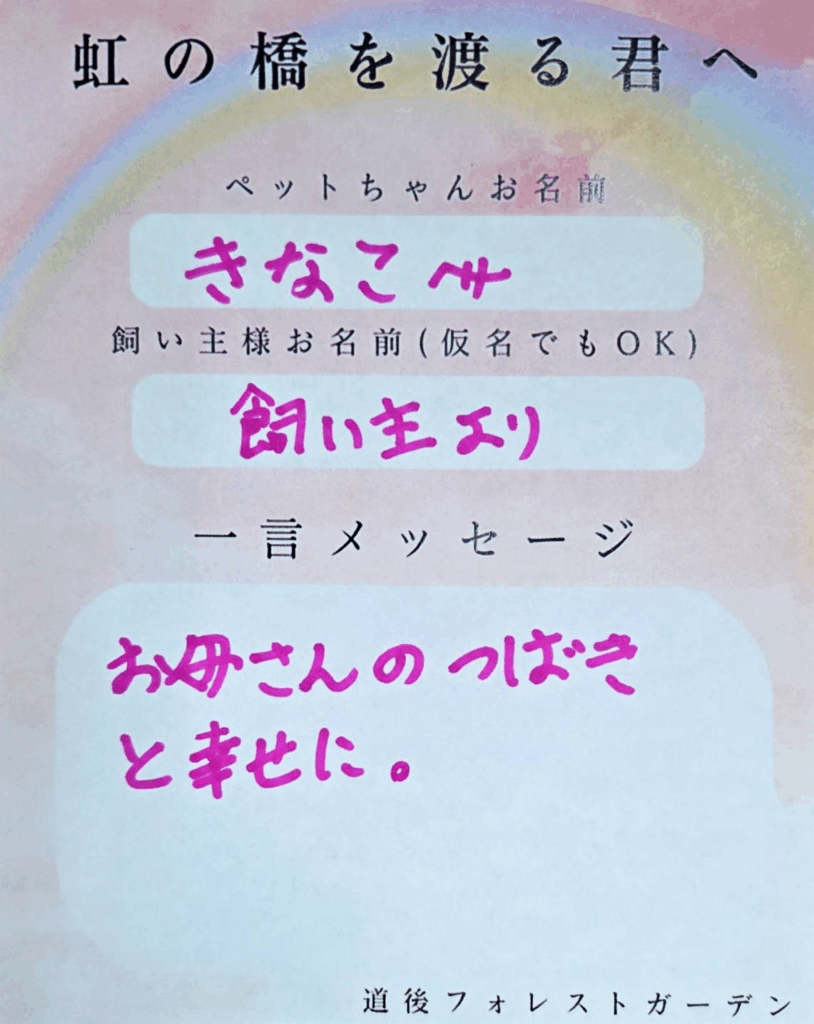 虹の橋を渡る君へ
ペットちゃんお名前
きなこへ
飼い主様お名前(仮名でもOK)
飼い主より
一言メッセージ
お母さんのつばき
と幸せに。
道後フォレストガーデン